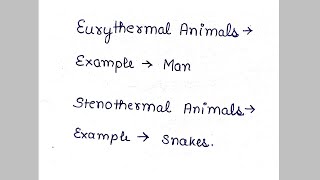 Eurythermal Animals →
Example → Man
Stenothermal Animals →
Example → Snakes.